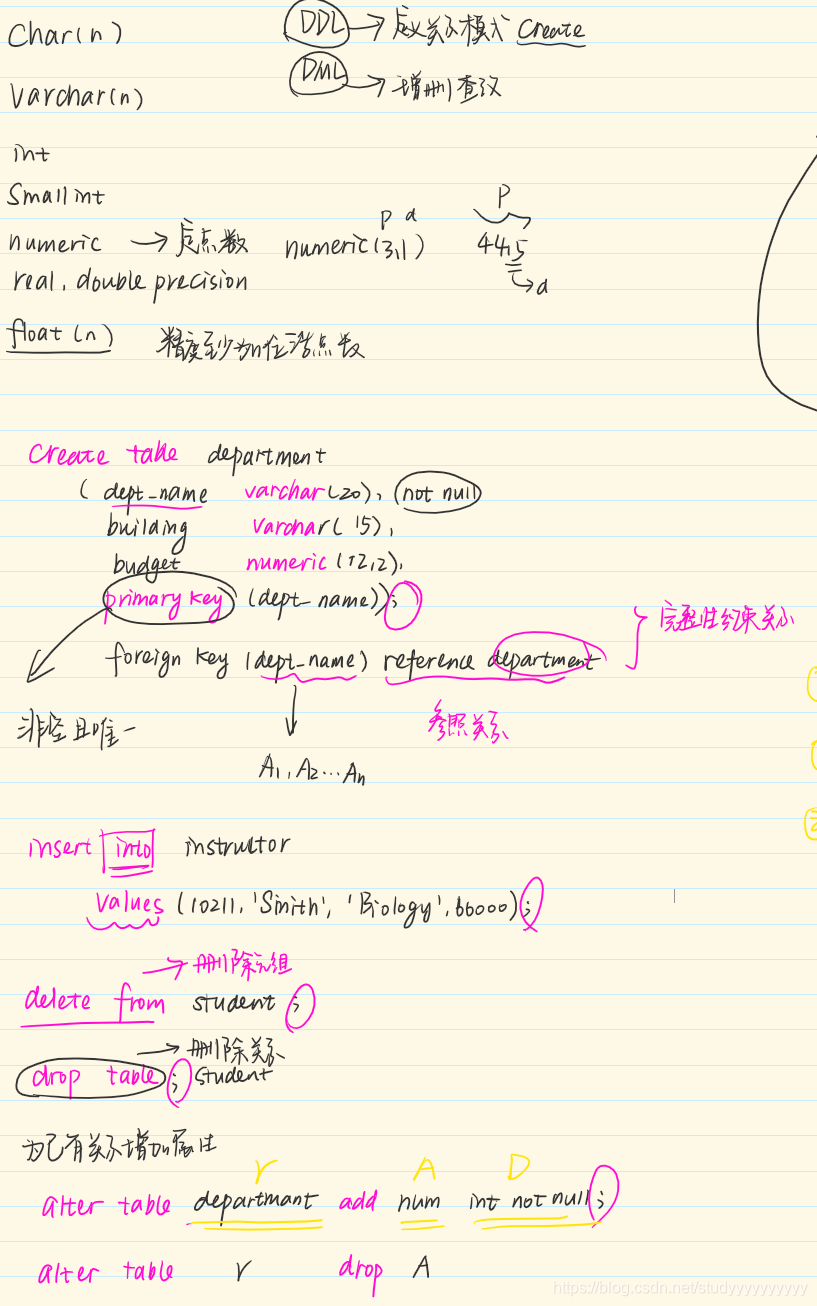 Char(n)
DDL → 定义关系模式 Create
DML → 增删查改
Varchar(n)
int
Smallint
numeric → 定点数 numeric(3,1) 44.5
p d
P
d
real, double precision
float(n) 精度至少为n位浮点数
Create table department
(dept_name varchar(20), (not null)
building varchar(15),
budget numeric(12,2),
primary key (dept_name));
foreign key (dept_name) reference department
完整性约束关系
非空且唯一
参照关系
A1, A2...An
insert into instructor
values (10211, 'Smith', 'Biology', 66000);
→ 删除元组
delete from student ;
→ 删除关系
drop table ; student
为已有关系增加属性
r A D
alter table departmant add num int not null;
alter table r drop A
https://blog.csdn.net/studyyyyyyyyyy